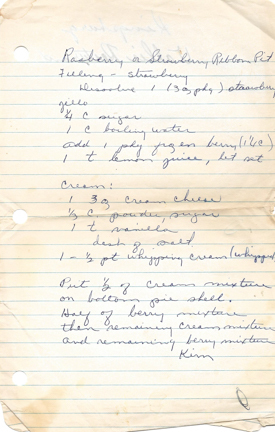 Rasberry or Strawberry Ribbon Pie
Filling - strawberry
Dissolve 1 (3 oz pkg) strawberry
jello
1/4 C sugar
1 C boiling water
add 1 pkg frozen berry (1 1/4 C)
1 t lemon juice, let set
Cream:
1 3 oz cream cheese
1/3 C powder, sugar
1 t vanilla
dash of salt
1 - 1/2 pt whipping cream (whipped)
Put 1/2 of cream mixture
on bottom pie shell.
Half of berry mixture
then remaining cream mixture
and remaining berry mixture
Kim